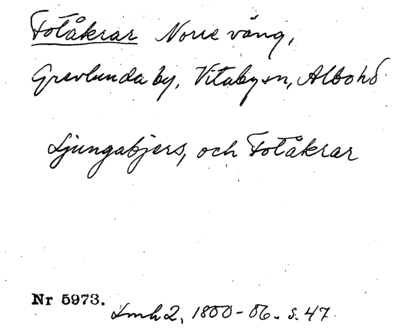 Fotåkrar Norre vång,
Grevlunda by, Vitaby sn, Albo hd
Ljungabjers, och Fotåkrar
Nr 5973.
Lmh 2, 1800-06. s. 47.